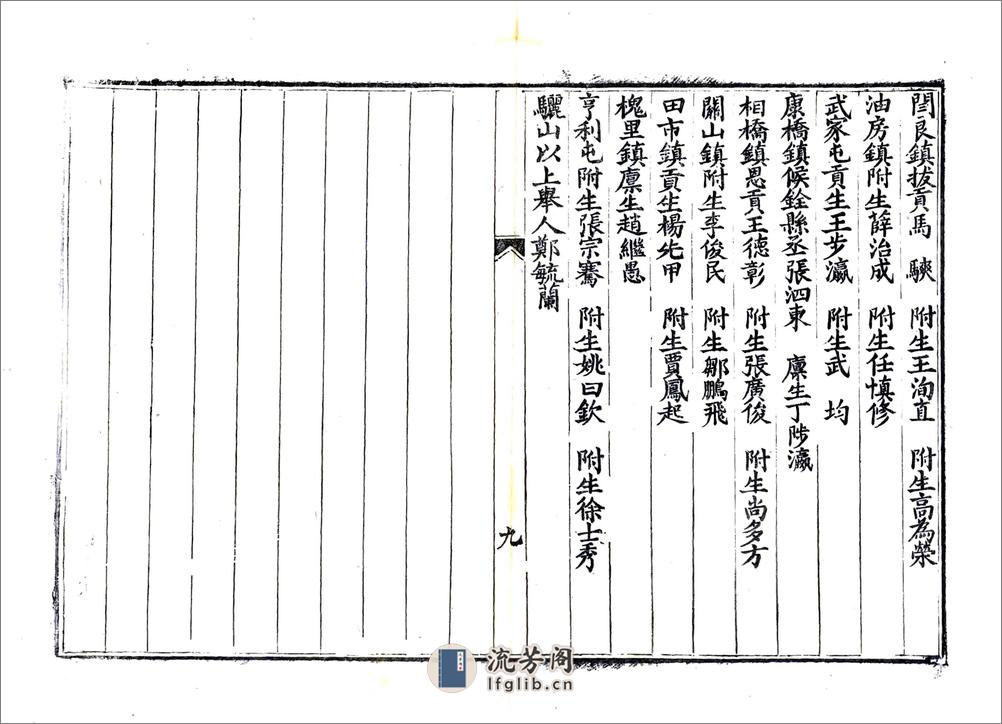 閆良鎮拔貢馬　駚　附生王洵直　附生高為榮
油房鎮附生薛治成　附生任慎修
武家屯貢生王步瀛　附生武　均
康橋鎮候銓縣丞張泗東　廩生丁陟瀛
相橋鎮恩貢王德彰　附生張廣俊　附生尚多方
關山鎮附生李俊民　附生鄒鵬飛
田市鎮貢生楊先甲　附生賈鳳起
槐里鎮廩生趙繼愚
亨利屯附生張宗騫　附生姚曰欽　附生徐士秀
驪山以上舉人鄭毓蘭
九
流芳阁
lfglib.cn